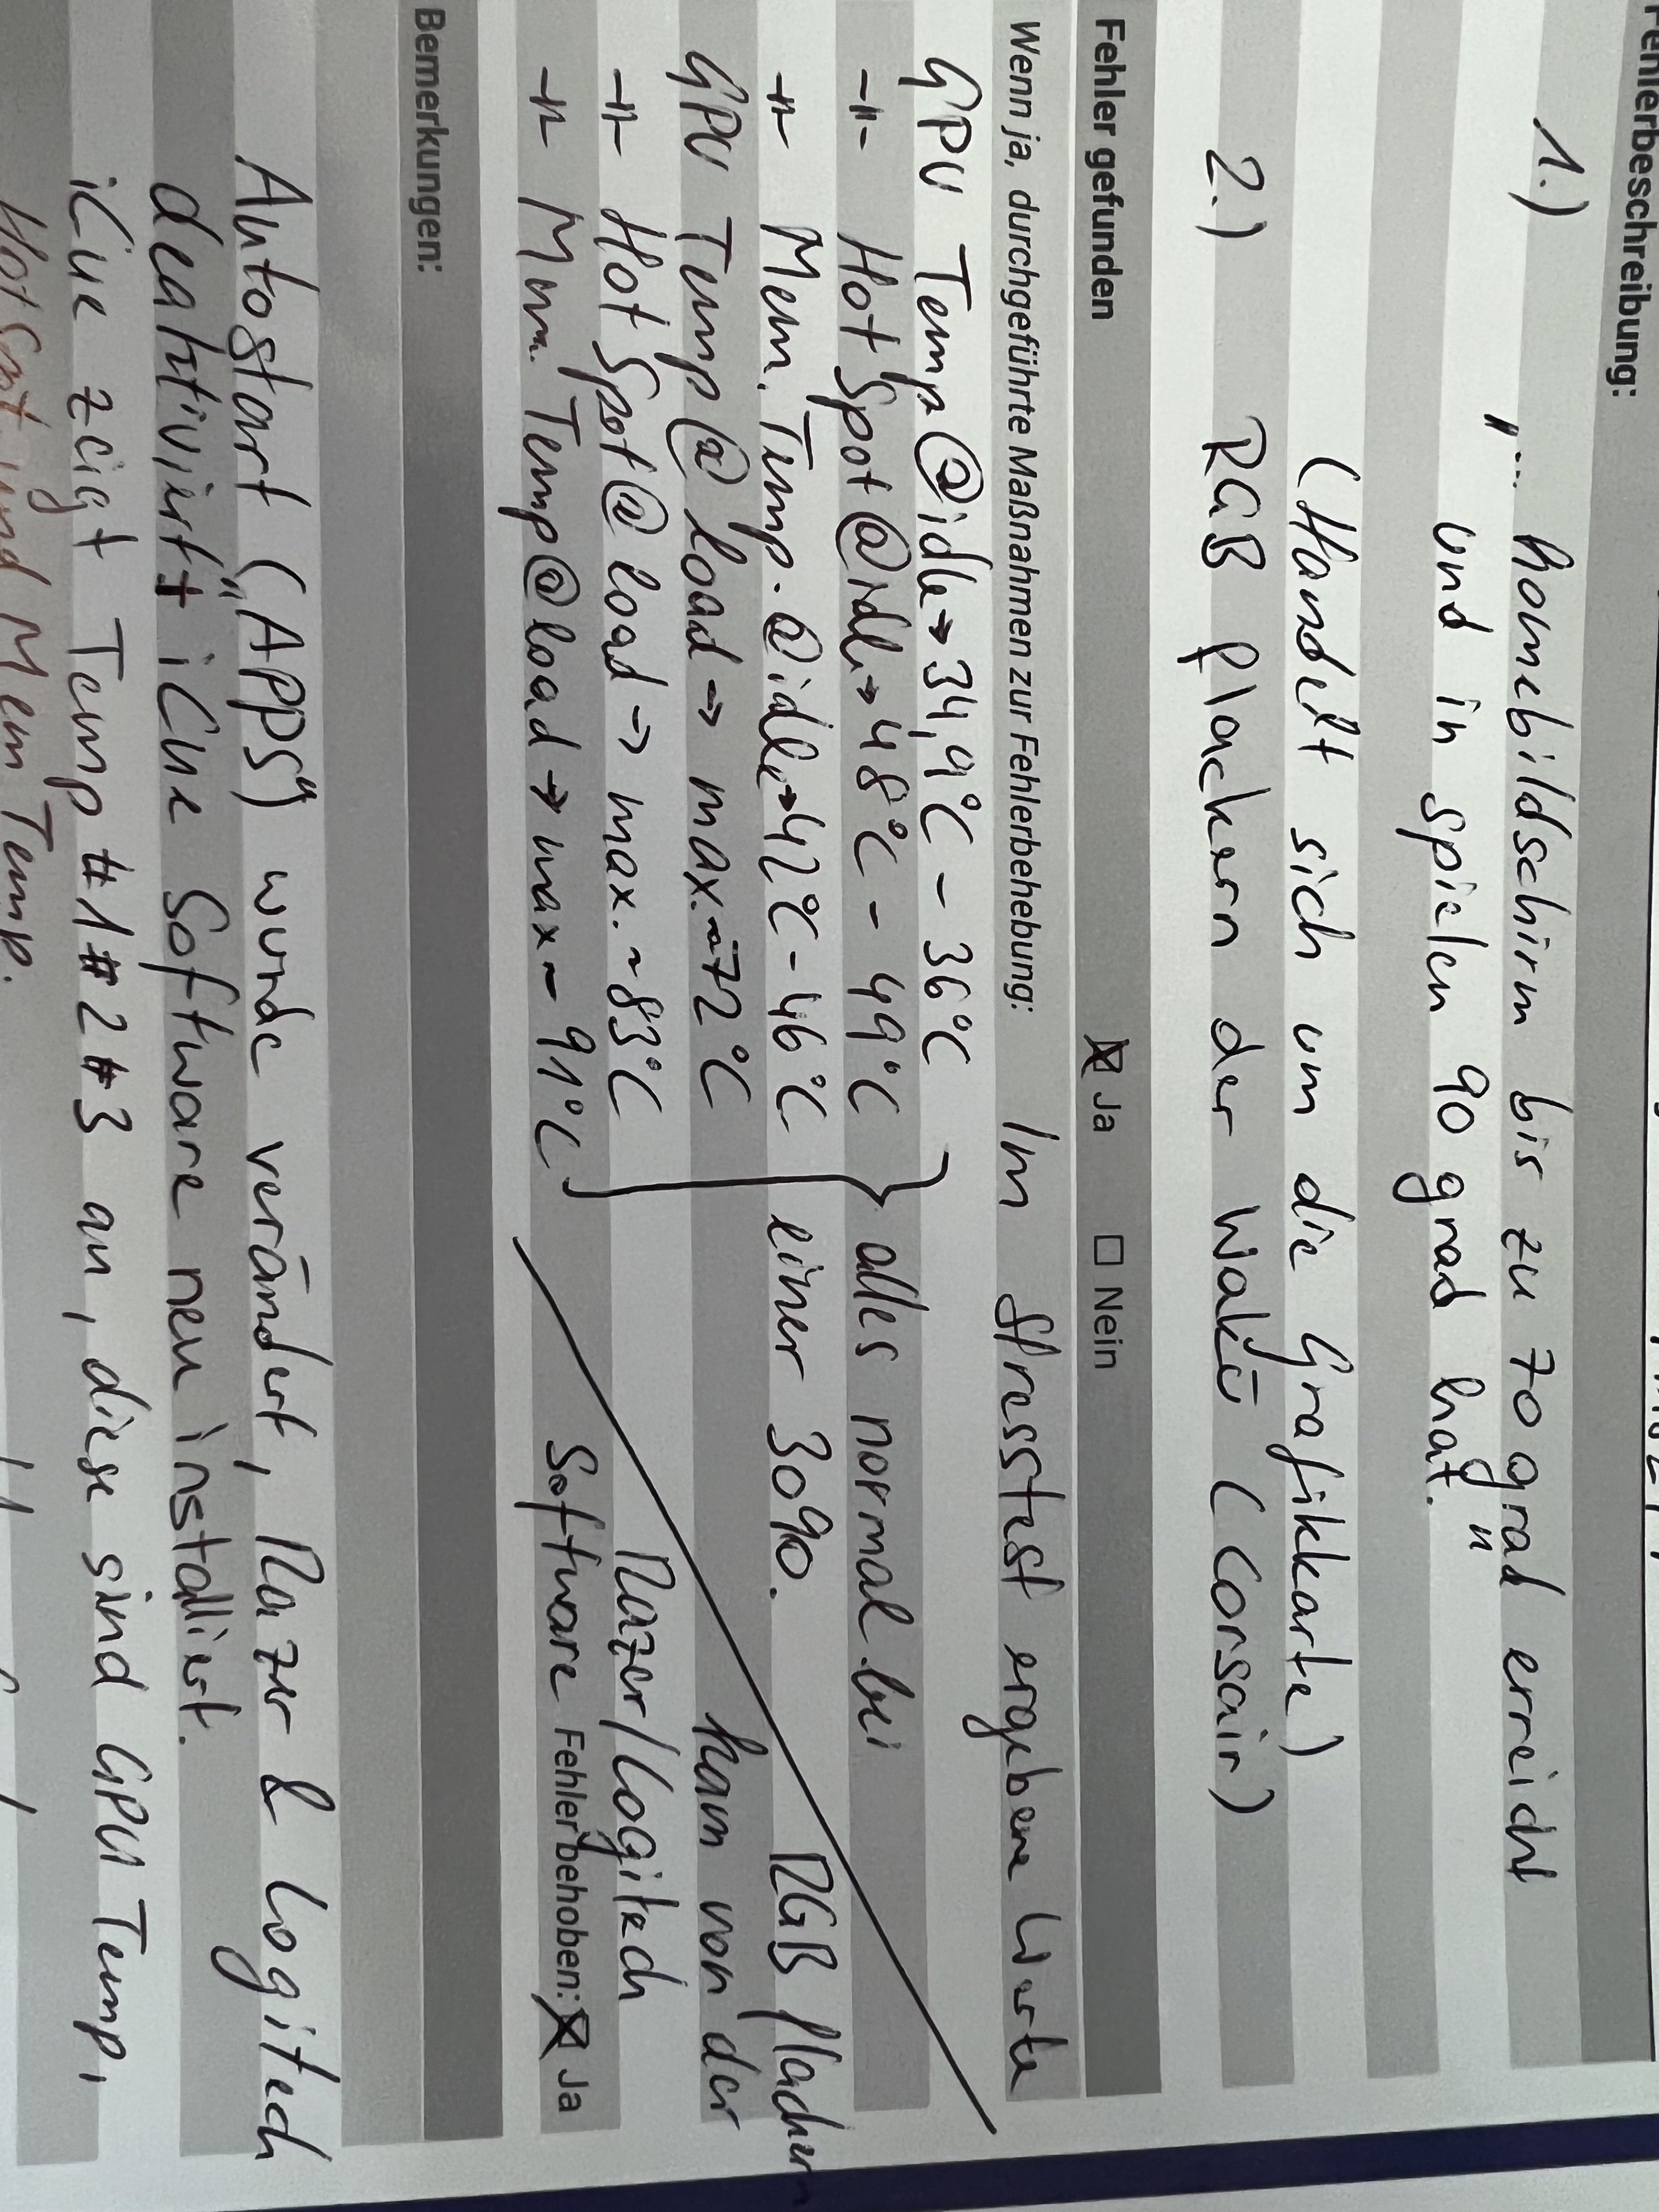 Fehlerbeschreibung:
1.) "... homebildschirm bis zu 70 grad erreicht
und in spielen 90 grad hat."
(Handelt sich um die Grafikkarte)
2.) RGB flackern der Wakü (Corsair)
Fehler gefunden ☒ Ja ☐ Nein
Wenn ja, durchgeführte Maßnahmen zur Fehlerbehebung: Im Stresstest ergebene Werte
GPU Temp @idle → 34,9°C - 36°C
-"- Hot Spot @idle → 48°C - 49°C } alles normal bei
-"- Mem. Temp. @idle → 42°C - 46°C einer 3090. RGB flackern
GPU Temp @ load → max. ~72°C kam von der
-"- Hot Spot @ load → max. ~83°C Razer/Logitech
-"- Mem. Temp @ load → max ~ 91°C Software Fehler behoben: ☒ Ja
Bemerkungen:
Autostart ("APPS") wurde verändert, Razer & Logitech
deaktiviert + iCue Software neu installiert.
iCue zeigt Temp #1 #2 #3 an, diese sind GPU Temp,
Hot Spot und Mem Temp.